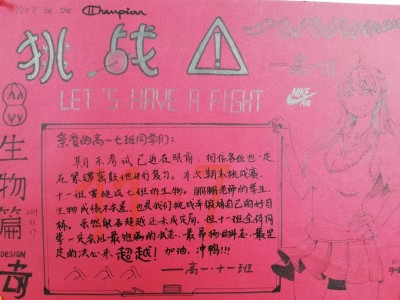 We'll be the Champion
挑战
LET'S HAVE A FIGHT
NIKE
AIR
生物篇
DESIGN
亲爱的高一七班同学们：
期末考试已近在眼前，相信各位也一定
在紧锣密鼓地进行复习。为次期末挑战赛，
十一班要挑战七班的生物。
生物成绩不容差，也是我们挑战并锻炼自己的好目
标。虽然能否超越还未成定局，但十一班全体同
学一定会以最饱满的状态、最昂扬的斗志、最坚
定的决心来超越！加油，冲鸭!!!
——高一·十一班